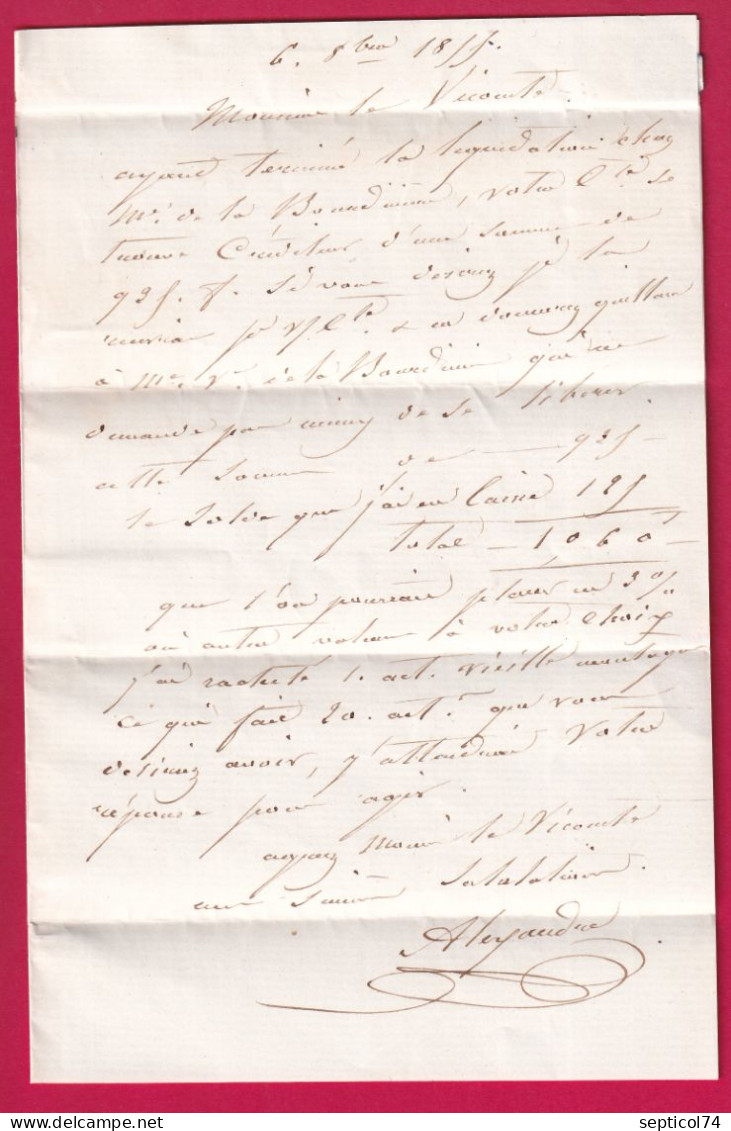 6. 8bre 1855.
Monsieur le Vicomte
ayant terminé la liquidation chez
Mr. de la Bourdinière, votre Cte se
trouve Créditeur d'une somme de
935. f. Si vous desirez je la
à Mr. de la Bourdinière qui me
demande de se liberer.
cette somme de — 935 —
le solde que j'ai en Caisse 125
total — 1060 —
que l'on pourrait placer en 3%
ou autre valeur à votre choix
j'ai racheté 1. act. vieille montagne
ce qui fait 20. act. que vous
desiriez avoir, j'attendrai votre
réponse pour agir.
agréez Monsr le Vicomte
mes Salutations.
Alexandre
septicol74